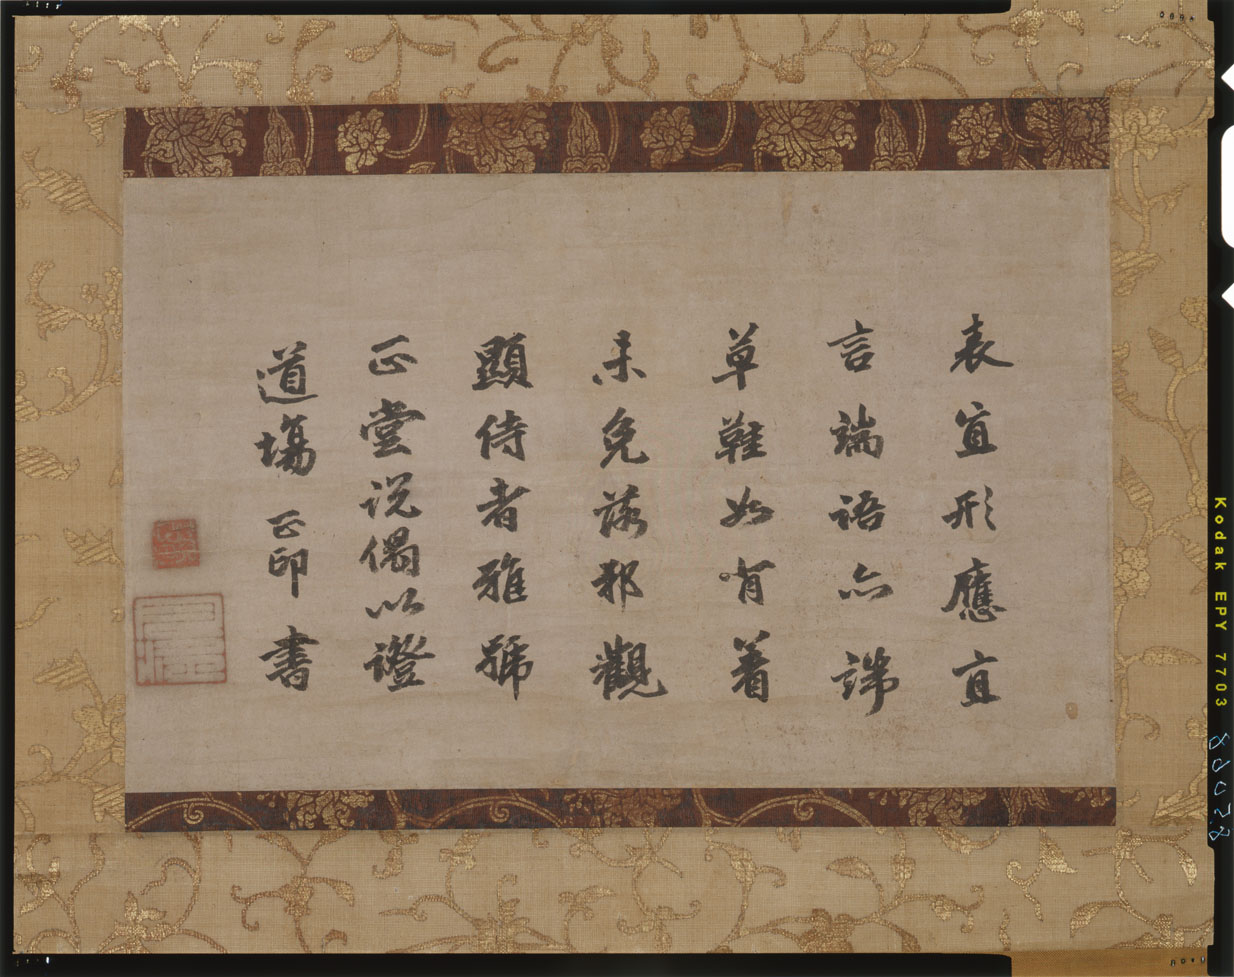 表直形應直
言端語亦端
草鞋如有着
未免落邪觀
顯侍者雅號
正堂説偈以證
道塲 正印書
Kodak EPY 7703